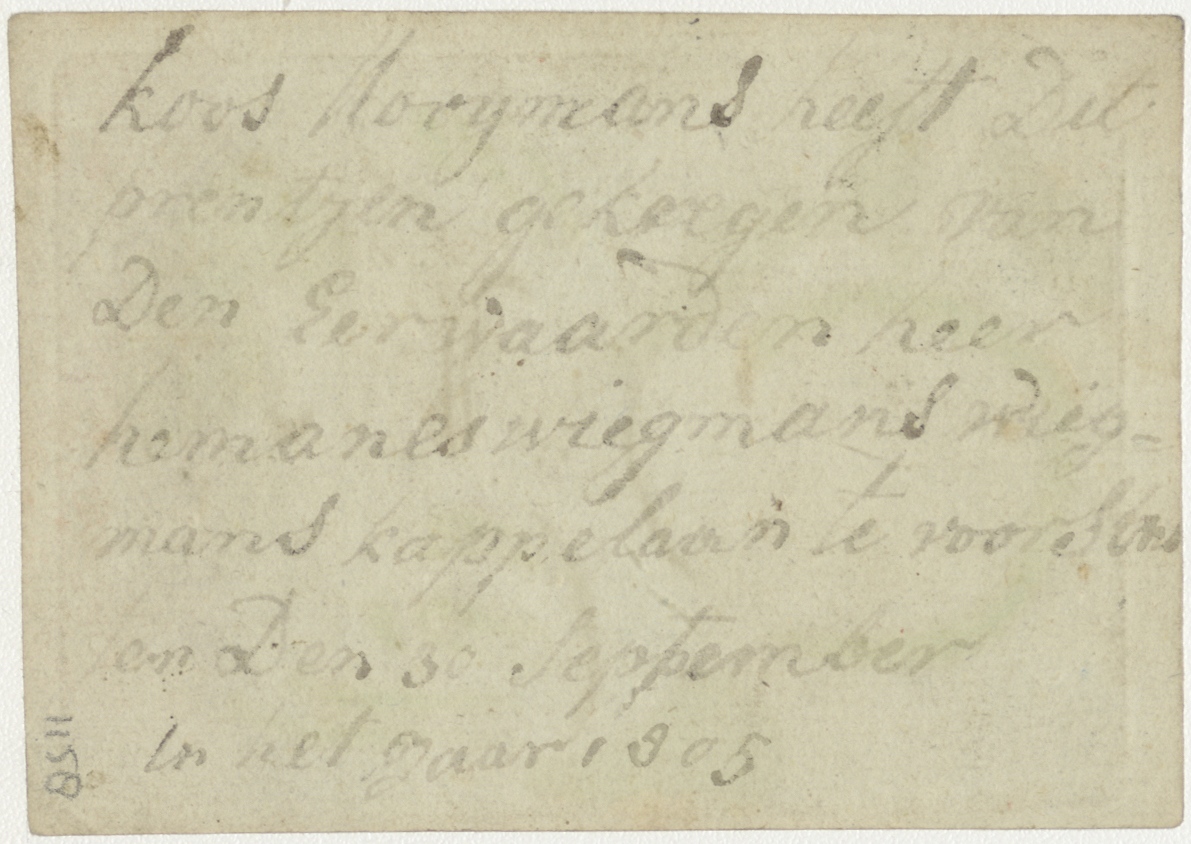 koos Mooymans heeft Dit
prentjen gekreegen van
Den Eerwaarden heer
hemanes wiegmans wieg-
mans kappelaan te voorsten
en Den 30 September
in het jaar 1805